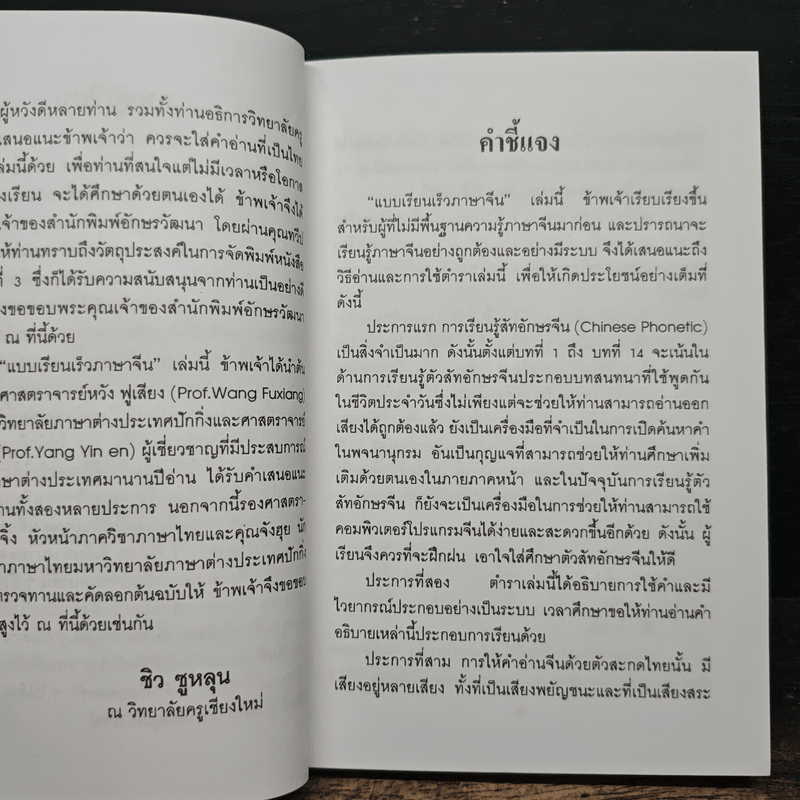 ผู้หวังดีหลายท่าน รวมทั้งท่านอธิการวิทยาลัยครู
เสนอแนะข้าพเจ้าว่า ควรจะใส่คำอ่านที่เป็นไทย
ล่มนี้ด้วย เพื่อท่านที่สนใจแต่ไม่มีเวลาหรือโอกาส
งเรียน จะได้ศึกษาด้วยตนเองได้ ข้าพเจ้าจึงได้
จ้าของสำนักพิมพ์อักษรวัฒนา โดยผ่านคุณทวีป
ห้ท่านทราบถึงวัตถุประสงค์ในการจัดพิมพ์หนังสือ
ที่ 3 ซึ่งก็ได้รับความสนับสนุนจากท่านเป็นอย่างดี
งขอขอบพระคุณเจ้าของสำนักพิมพ์อักษรวัฒนา
ณ ที่นี้ด้วย
“แบบเรียนเร็วภาษาจีน” เล่มนี้ ข้าพเจ้าได้นำต้น
ศาสตราจารย์หวัง ฟูเสียง (Prof.Wang Fuxiang)
วิทยาลัยภาษาต่างประเทศปักกิ่งและศาสตราจารย์
(Prof.Yang Yin en) ผู้เชี่ยวชาญที่มีประสบการณ์
ษาต่างประเทศมานานปีอ่าน ได้รับคำเสนอแนะ
านทั้งสองหลายประการ นอกจากนี้รองศาสตรา-
จิ้ง หัวหน้าภาควิชาภาษาไทยและคุณจังฮุย นัก
าภาษาไทยมหาวิทยาลัยภาษาต่างประเทศปักกิ่ง
ตรวจทานและคัดลอกต้นฉบับให้ ข้าพเจ้าจึงขอขอบ
สูงไว้ ณ ที่นี้ด้วยเช่นกัน
ชิว ซูหลุน
ณ วิทยาลัยครูเชียงใหม่
คำชี้แจง
“แบบเรียนเร็วภาษาจีน” เล่มนี้ ข้าพเจ้าเรียบเรียงขึ้น
สำหรับผู้ที่ไม่มีพื้นฐานความรู้ภาษาจีนมาก่อน และปรารถนาจะ
เรียนรู้ภาษาจีนอย่างถูกต้องและอย่างมีระบบ จึงได้เสนอแนะถึง
วิธีอ่านและการใช้ตำราเล่มนี้ เพื่อให้เกิดประโยชน์อย่างเต็มที่
ดังนี้
ประการแรก การเรียนรู้สัทอักษรจีน (Chinese Phonetic)
เป็นสิ่งจำเป็นมาก ดังนั้นตั้งแต่บทที่ 1 ถึง บทที่ 14 จะเน้นใน
ด้านการเรียนรู้ตัวสัทอักษรจีนประกอบบทสนทนาที่ใช้พูดกัน
ในชีวิตประจำวันซึ่งไม่เพียงแต่จะช่วยให้ท่านสามารถอ่านออก
เสียงได้ถูกต้องแล้ว ยังเป็นเครื่องมือที่จำเป็นในการเปิดค้นหาคำ
ในพจนานุกรม อันเป็นกุญแจที่สามารถช่วยให้ท่านศึกษาเพิ่ม
เติมด้วยตนเองในภายภาคหน้า และในปัจจุบันการเรียนรู้ตัว
สัทอักษรจีน ก็ยังจะเป็นเครื่องมือในการช่วยให้ท่านสามารถใช้
คอมพิวเตอร์โปรแกรมจีนได้ง่ายและสะดวกขึ้นอีกด้วย ดังนั้น ผู้
เรียนจึงควรที่จะฝึกฝน เอาใจใส่ศึกษาตัวสัทอักษรจีนให้ดี
ประการที่สอง ตำราเล่มนี้ได้อธิบายการใช้คำและมี
ไวยากรณ์ประกอบอย่างเป็นระบบ เวลาศึกษาขอให้ท่านอ่านคำ
อธิบายเหล่านี้ประกอบการเรียนด้วย
ประการที่สาม การให้คำอ่านจีนด้วยตัวสะกดไทยนั้น มี
เสียงอยู่หลายเสียง ทั้งที่เป็นเสียงพยัญชนะและที่เป็นเสียงสระ